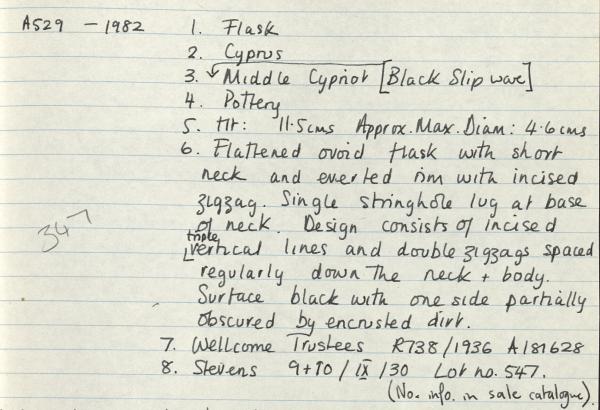 A529 - 1982
1. Flask
2. Cyprus
3. Middle Cypriot [Black Slip ware]
4. Pottery
5. Ht: 11.5cms Approx. Max. Diam: 4.6cms
6. Flattened ovoid flask with short
neck and everted rim with incised
zigzag. Single stringhole lug at base
of neck. Design consists of incised
triple
vertical lines and double zigzags spaced
regularly down the neck + body.
347
Surface black with one side partially
obscured by encrusted dirt.
7. Wellcome Trustees R738/1936 A181628
8. Stevens 9+10/IX/30 Lot no. 547.
(No. info. in sale catalogue).